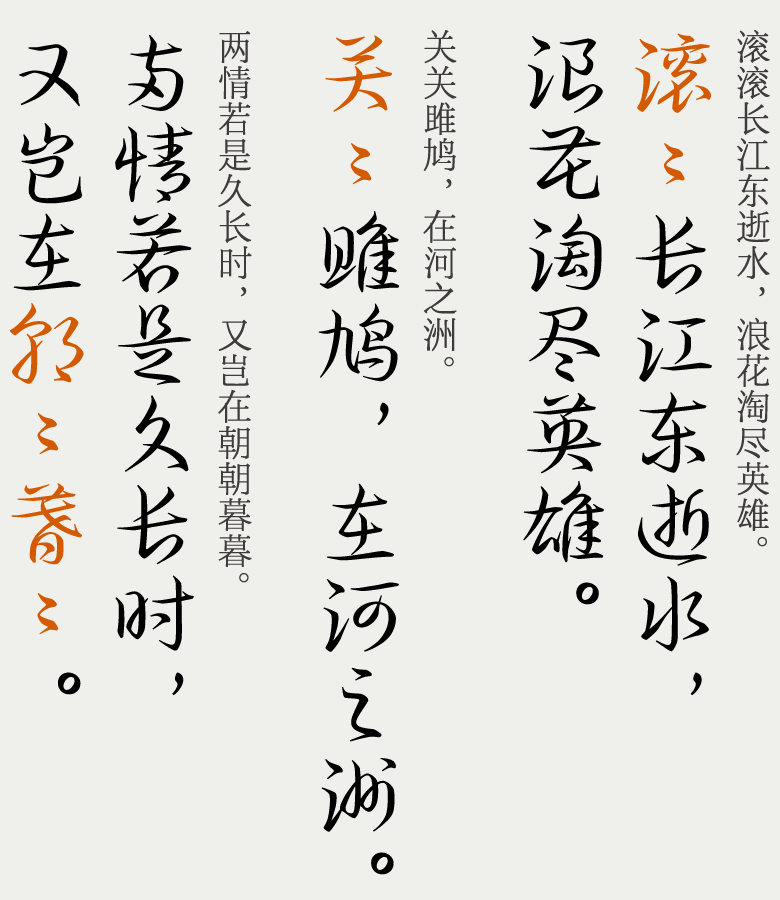 滚滚长江东逝水，浪花淘尽英雄。
滚〻长江东逝水，
浪花淘尽英雄。
关关雎鸠，在河之洲。
关〻雎鸠，在河之洲。
两情若是久长时，又岂在朝朝暮暮。
两情若是久长时，
又岂在朝〻暮〻。